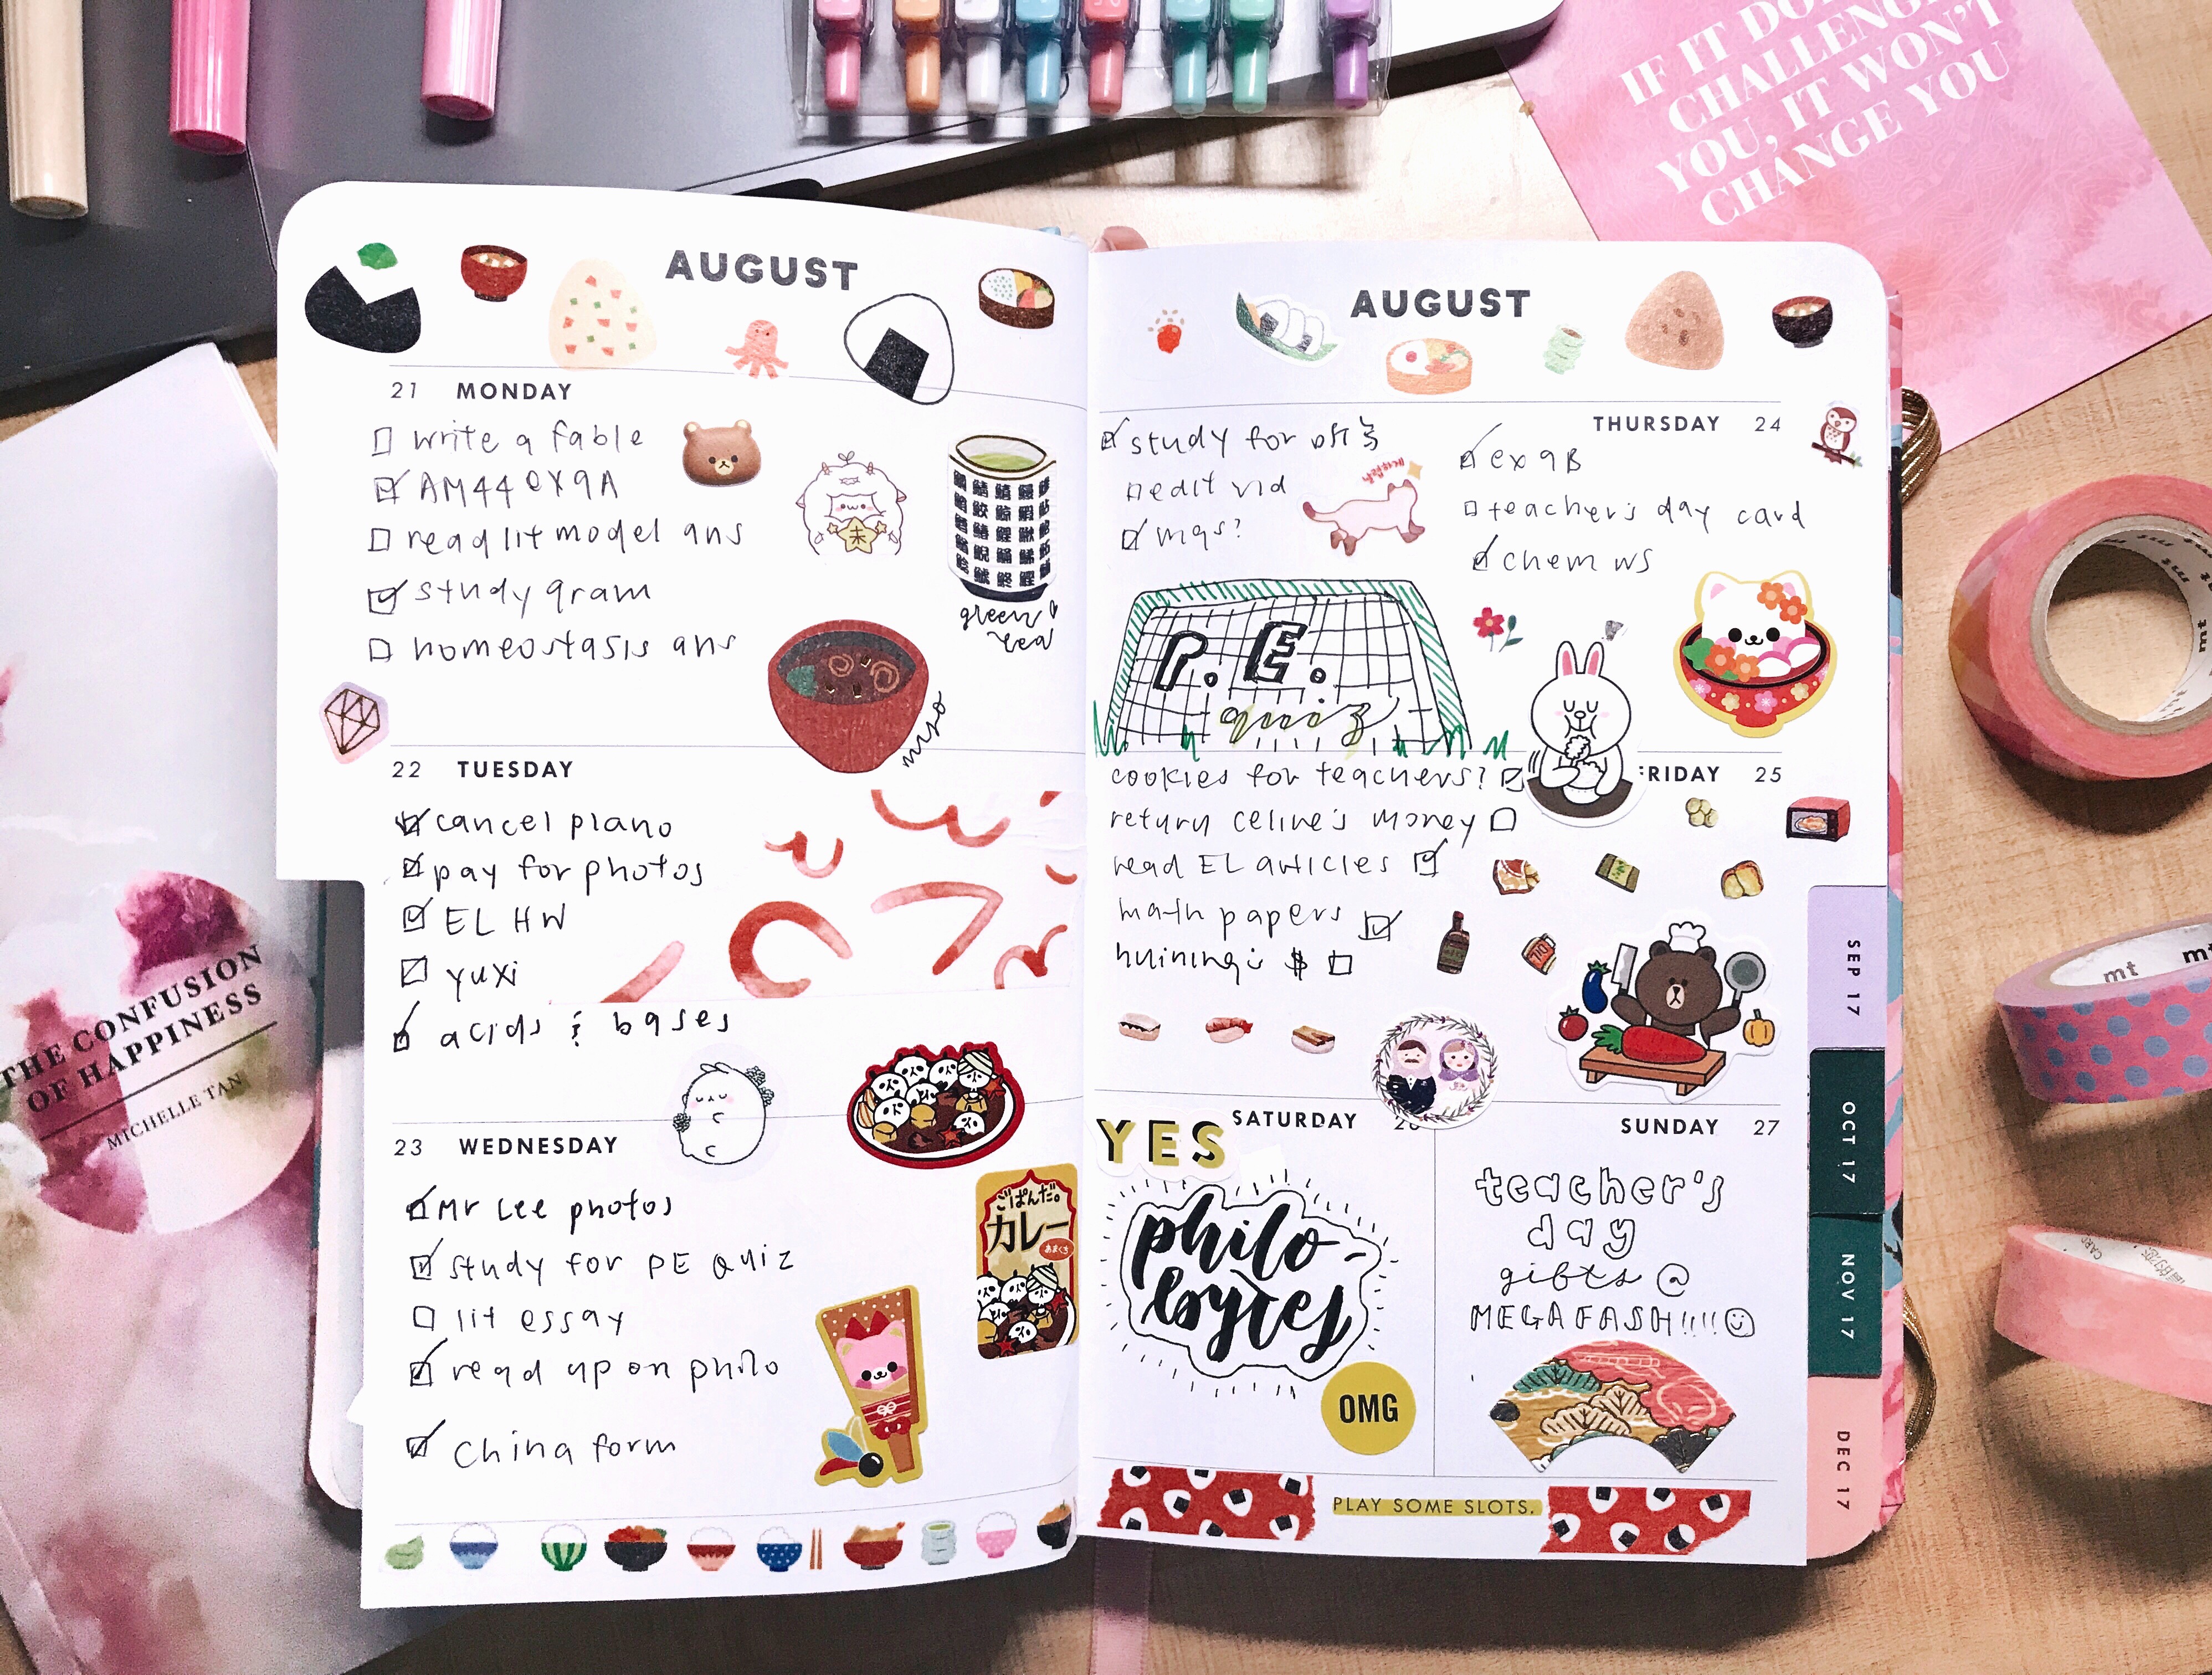 IF IT DO
CHALLENG
YOU, IT WON'T
CHANGE YOU
AUGUST
21 MONDAY
write a fable
AM44 ex9A
read lit model ans
study gram
homeostasis ans
green
tea
miso
22 TUESDAY
cancel piano
pay for photos
EL HW
yuxi
acids & bases
23 WEDNESDAY
Mr Lee photos
study for PE Quiz
lit essay
read up on philo
China form
ごぱんだ。
カレー
あまくち
AUGUST
THURSDAY 24
study for
edit vid
mqs?
ex 9B
teacher's day card
chem ws
P.E.
quiz
FRIDAY 25
cookies for teachers?
return celine's money
read EL articles
math papers
huining's $
YES
SATURDAY 26
philo-
OMG
SUNDAY 27
teacher's
day
gifts @
MEGAFASH!!!!
PLAY SOME SLOTS.
SEP 17
OCT 17
NOV 17
DEC 17
THE CONFUSION
OF HAPPINESS
MICHELLE TAN
mt
mt
mt